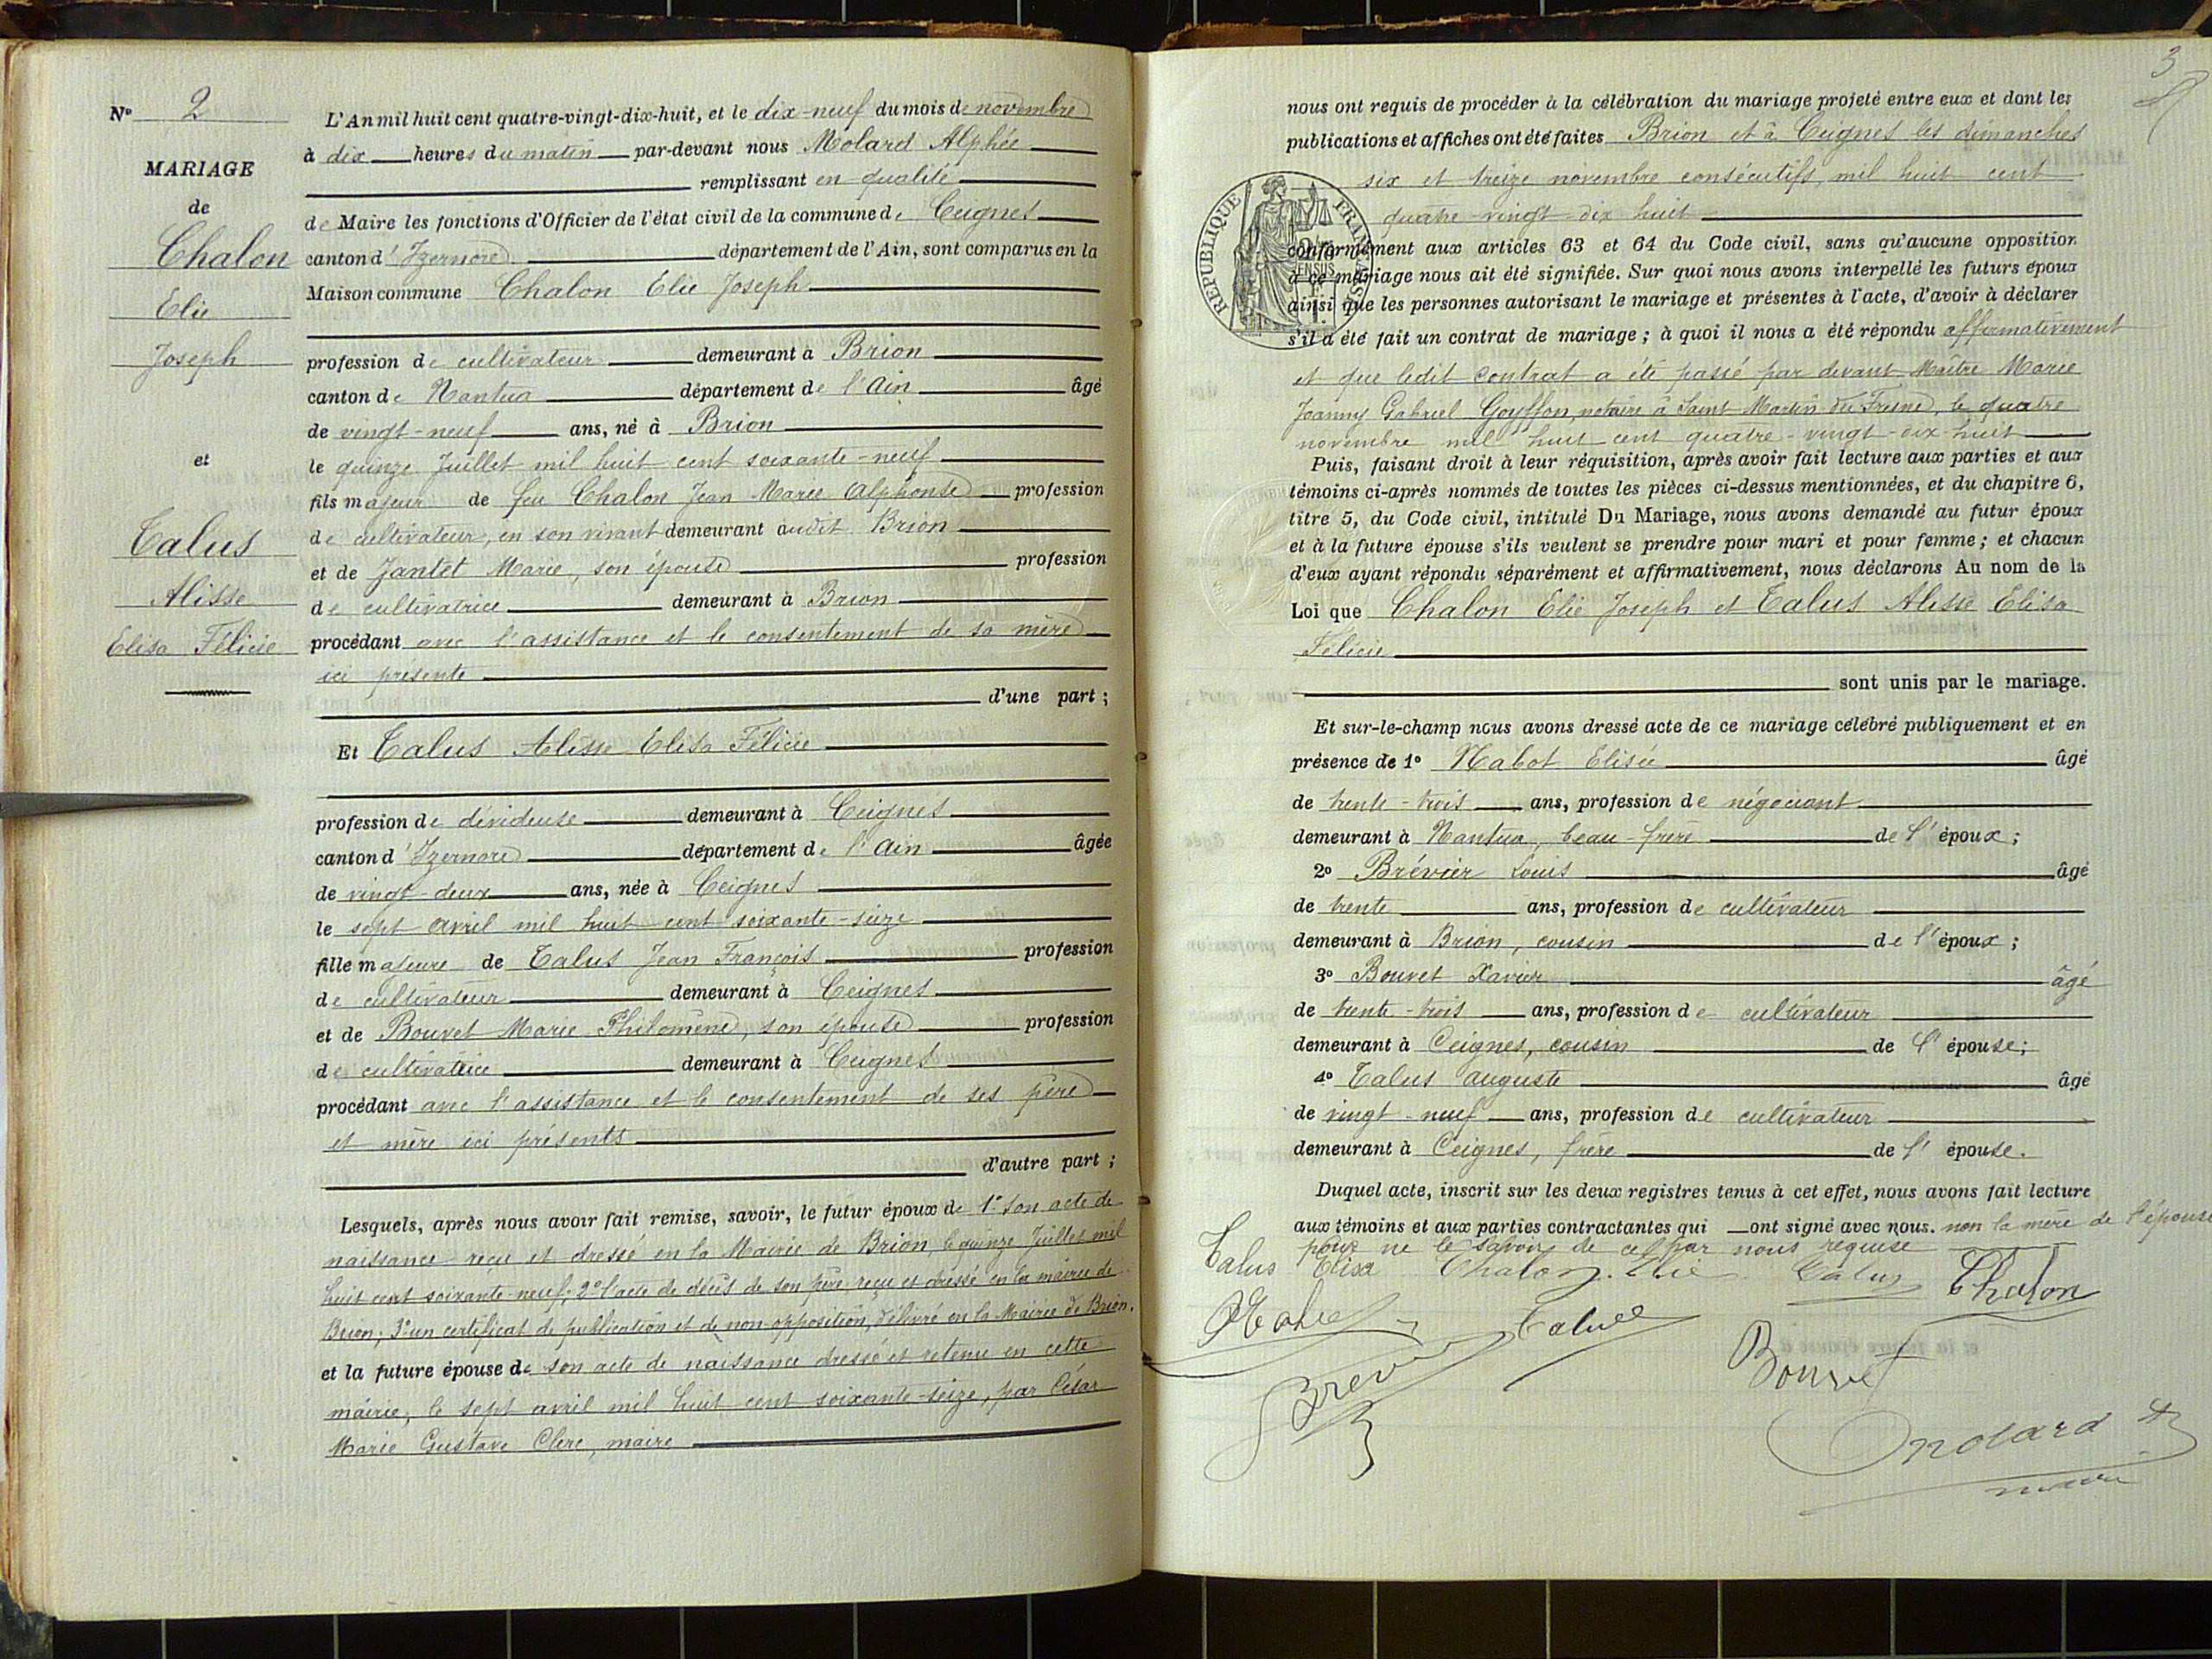 N° 2
MARIAGE
de
Chalon
Elie
Joseph
et
Talus
Alisse
Elisa Félicie
L'An mil huit cent quatre-vingt-dix-huit, et le dix-neuf du mois de novembre
à dix heures du matin par-devant nous Molard Alphée
remplissant en qualité
de Maire les fonctions d'Officier de l'état civil de la commune de Ceignes
canton d'Izernore département de l'Ain, sont comparus en la
Maison commune Chalon Elie Joseph
profession de cultivateur demeurant à Brion
canton de Nantua département de l'Ain âgé
de vingt-neuf ans, né à Brion
le quinze Juillet mil huit cent soixante-neuf
fils majeur de feu Chalon Jean Marie Alphonse profession
de cultivateur, en son vivant demeurant audit Brion
et de Jantet Marie, son épouse profession
de cultivatrice demeurant à Brion
procédant avec l'assistance et le consentement de sa mère
ici présente
d'une part ;
Et Talus Alisse Elisa Félicie
profession de dévideuse demeurant à Ceignes
canton d'Izernore département de l'Ain âgée
de vingt-deux ans, née à Ceignes
le sept avril mil huit cent soixante-seize
fille majeure de Talus Jean François profession
de cultivateur demeurant à Ceignes
et de Bouvet Marie Philomène, son épouse profession
de cultivatrice demeurant à Ceignes
procédant avec l'assistance et le consentement de ses père
et mère ici présents
d'autre part ;
Lesquels, après nous avoir fait remise, savoir, le futur époux de 1° son acte de
naissance reçu et dressé en la Mairie de Brion, le quinze Juillet mil
huit cent soixante-neuf; 2° l'acte de décès de son père reçu et dressé en la mairie de
Brion; 3° un certificat de publication et de non-opposition, délivré en la Mairie de Brion.
et la future épouse de son acte de naissance dressé et retenu en cette
mairie, le sept avril mil huit cent soixante-seize, par César
Marie Gustave Clerc, maire
3
nous ont requis de procéder à la célébration du mariage projeté entre eux et dont les
publications et affiches ont été faites Brion et à Ceignes les dimanches
six et treize novembre consécutifs, mil huit cent
quatre-vingt-dix huit
RÉPUBLIQUE FRANÇAISE
conformément aux articles 63 et 64 du Code civil, sans qu'aucune opposition
à ce mariage nous ait été signifiée. Sur quoi nous avons interpellé les futurs époux
ainsi que les personnes autorisant le mariage et présentes à l'acte, d'avoir à déclarer
s'il a été fait un contrat de mariage ; à quoi il nous a été répondu affirmativement
et que ledit contrat a été passé par devant Maître Marie
Joanny Gabriel Goyffon, notaire à Saint Martin du Fresne, le quatre
novembre mil huit cent quatre-vingt-dix-huit
Puis, faisant droit à leur réquisition, après avoir fait lecture aux parties et aux
témoins ci-après nommés de toutes les pièces ci-dessus mentionnées, et du chapitre 6,
titre 5, du Code civil, intitulé Du Mariage, nous avons demandé au futur époux
et à la future épouse s'ils veulent se prendre pour mari et pour femme ; et chacun
d'eux ayant répondu séparément et affirmativement, nous déclarons Au nom de la
Loi que Chalon Elie Joseph et Talus Alisse Elisa
Félicie
sont unis par le mariage.
Et sur-le-champ nous avons dressé acte de ce mariage célébré publiquement et en
présence de 1° Nabot Elisée âgé
de trente-trois ans, profession de négociant
demeurant à Nantua, beau-frère de l'époux ;
2° Brévier Louis âgé
de trente ans, profession de cultivateur
demeurant à Brion, cousin de l'époux ;
3° Bouvet Xavier âgé
de trente-trois ans, profession de cultivateur
demeurant à Ceignes, cousin de l'épouse ;
4° Talus auguste âgé
de vingt-neuf ans, profession de cultivateur
demeurant à Ceignes, frère de l'épouse.
Duquel acte, inscrit sur les deux registres tenus à cet effet, nous avons fait lecture
aux témoins et aux parties contractantes qui ont signé avec nous. non la mère de l'épouse
pour ne le savoir de ce par nous requise
Talus Elisa Chalon. Elie Talus Chalon
Talus
Brevier
Bouvet
Molard
maire